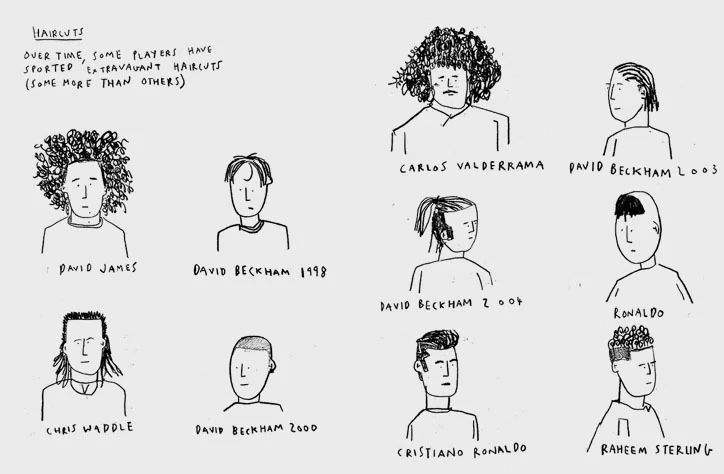 HAIRCUTS
OVER TIME, SOME PLAYERS HAVE
SPORTED EXTRAVAGANT HAIRCUTS
(SOME MORE THAN OTHERS)
CARLOS VALDERRAMA
DAVID BECKHAM 2003
DAVID JAMES
DAVID BECKHAM 1998
DAVID BECKHAM 2004
RONALDO
CHRIS WADDLE
DAVID BECKHAM 2000
CRISTIANO RONALDO
RAHEEM STERLING